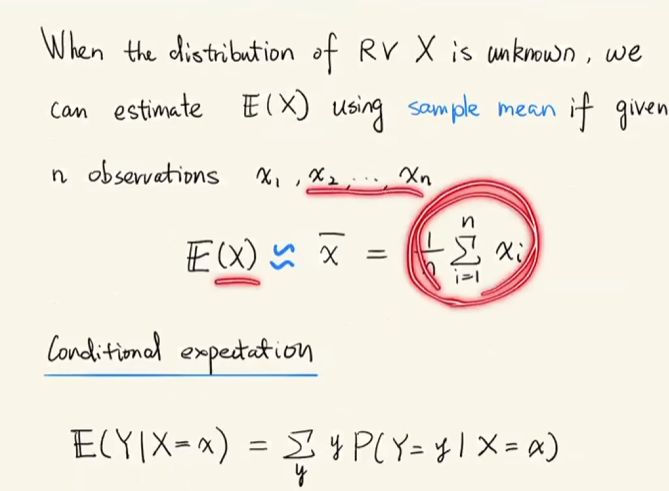 When the distribution of RV X is unknown, we
can estimate 𝔼(X) using sample mean if given
n observations x₁, x₂, ..., xₙ
𝔼(X) ≈ x̄ = 1/n Σᵢ₌₁ⁿ xᵢ
Conditional expectation
𝔼(Y|X=x) = Σ_y y P(Y=y | X=x)